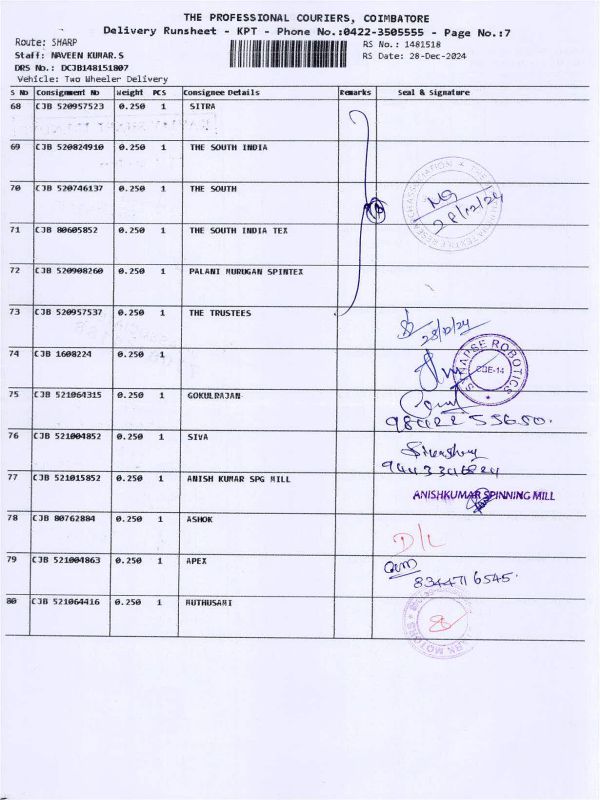 THE PROFESSIONAL COURIERS, COIMBATORE
Delivery Runsheet - KPT - Phone No.:0422-3505555 - Page No.:7
Route: SHARP RS No.: 1481518
Staff: NAVEEN KUMAR.S RS Date: 28-Dec-2024
DRS No.: DCJB148151807
Vehicle: Two Wheeler Delivery
S No Consignment No Weight PCS Consignee Details Remarks Seal & signature
68 CJB 520957523 0.250 1 SITRA
69 CJB 520824910 0.250 1 THE SOUTH INDIA
70 CJB 520746137 0.250 1 THE SOUTH
28/12/24
71 CJB 80605852 0.250 1 THE SOUTH INDIA TEX
72 CJB 520908260 0.250 1 PALANI MURUGAN SPINTEX
73 CJB 520957537 0.250 1 THE TRUSTEES
28/12/24
74 CJB 1608224 0.250 1
SYNAPSE ROBOTICS
CBE-14
75 CJB 521064315 0.250 1 GOKULRAJAN
98422 55650.
76 CJB 521004852 0.250 1 SIVA
77 CJB 521015852 0.250 1 ANISH KUMAR SPG MILL
ANISHKUMAR SPINNING MILL
78 CJB 80762884 0.250 1 ASHOK
D/L
79 CJB 521004863 0.250 1 APEX
8344716545.
80 CJB 521064416 0.250 1 MUTHUSAMI
MOTORS